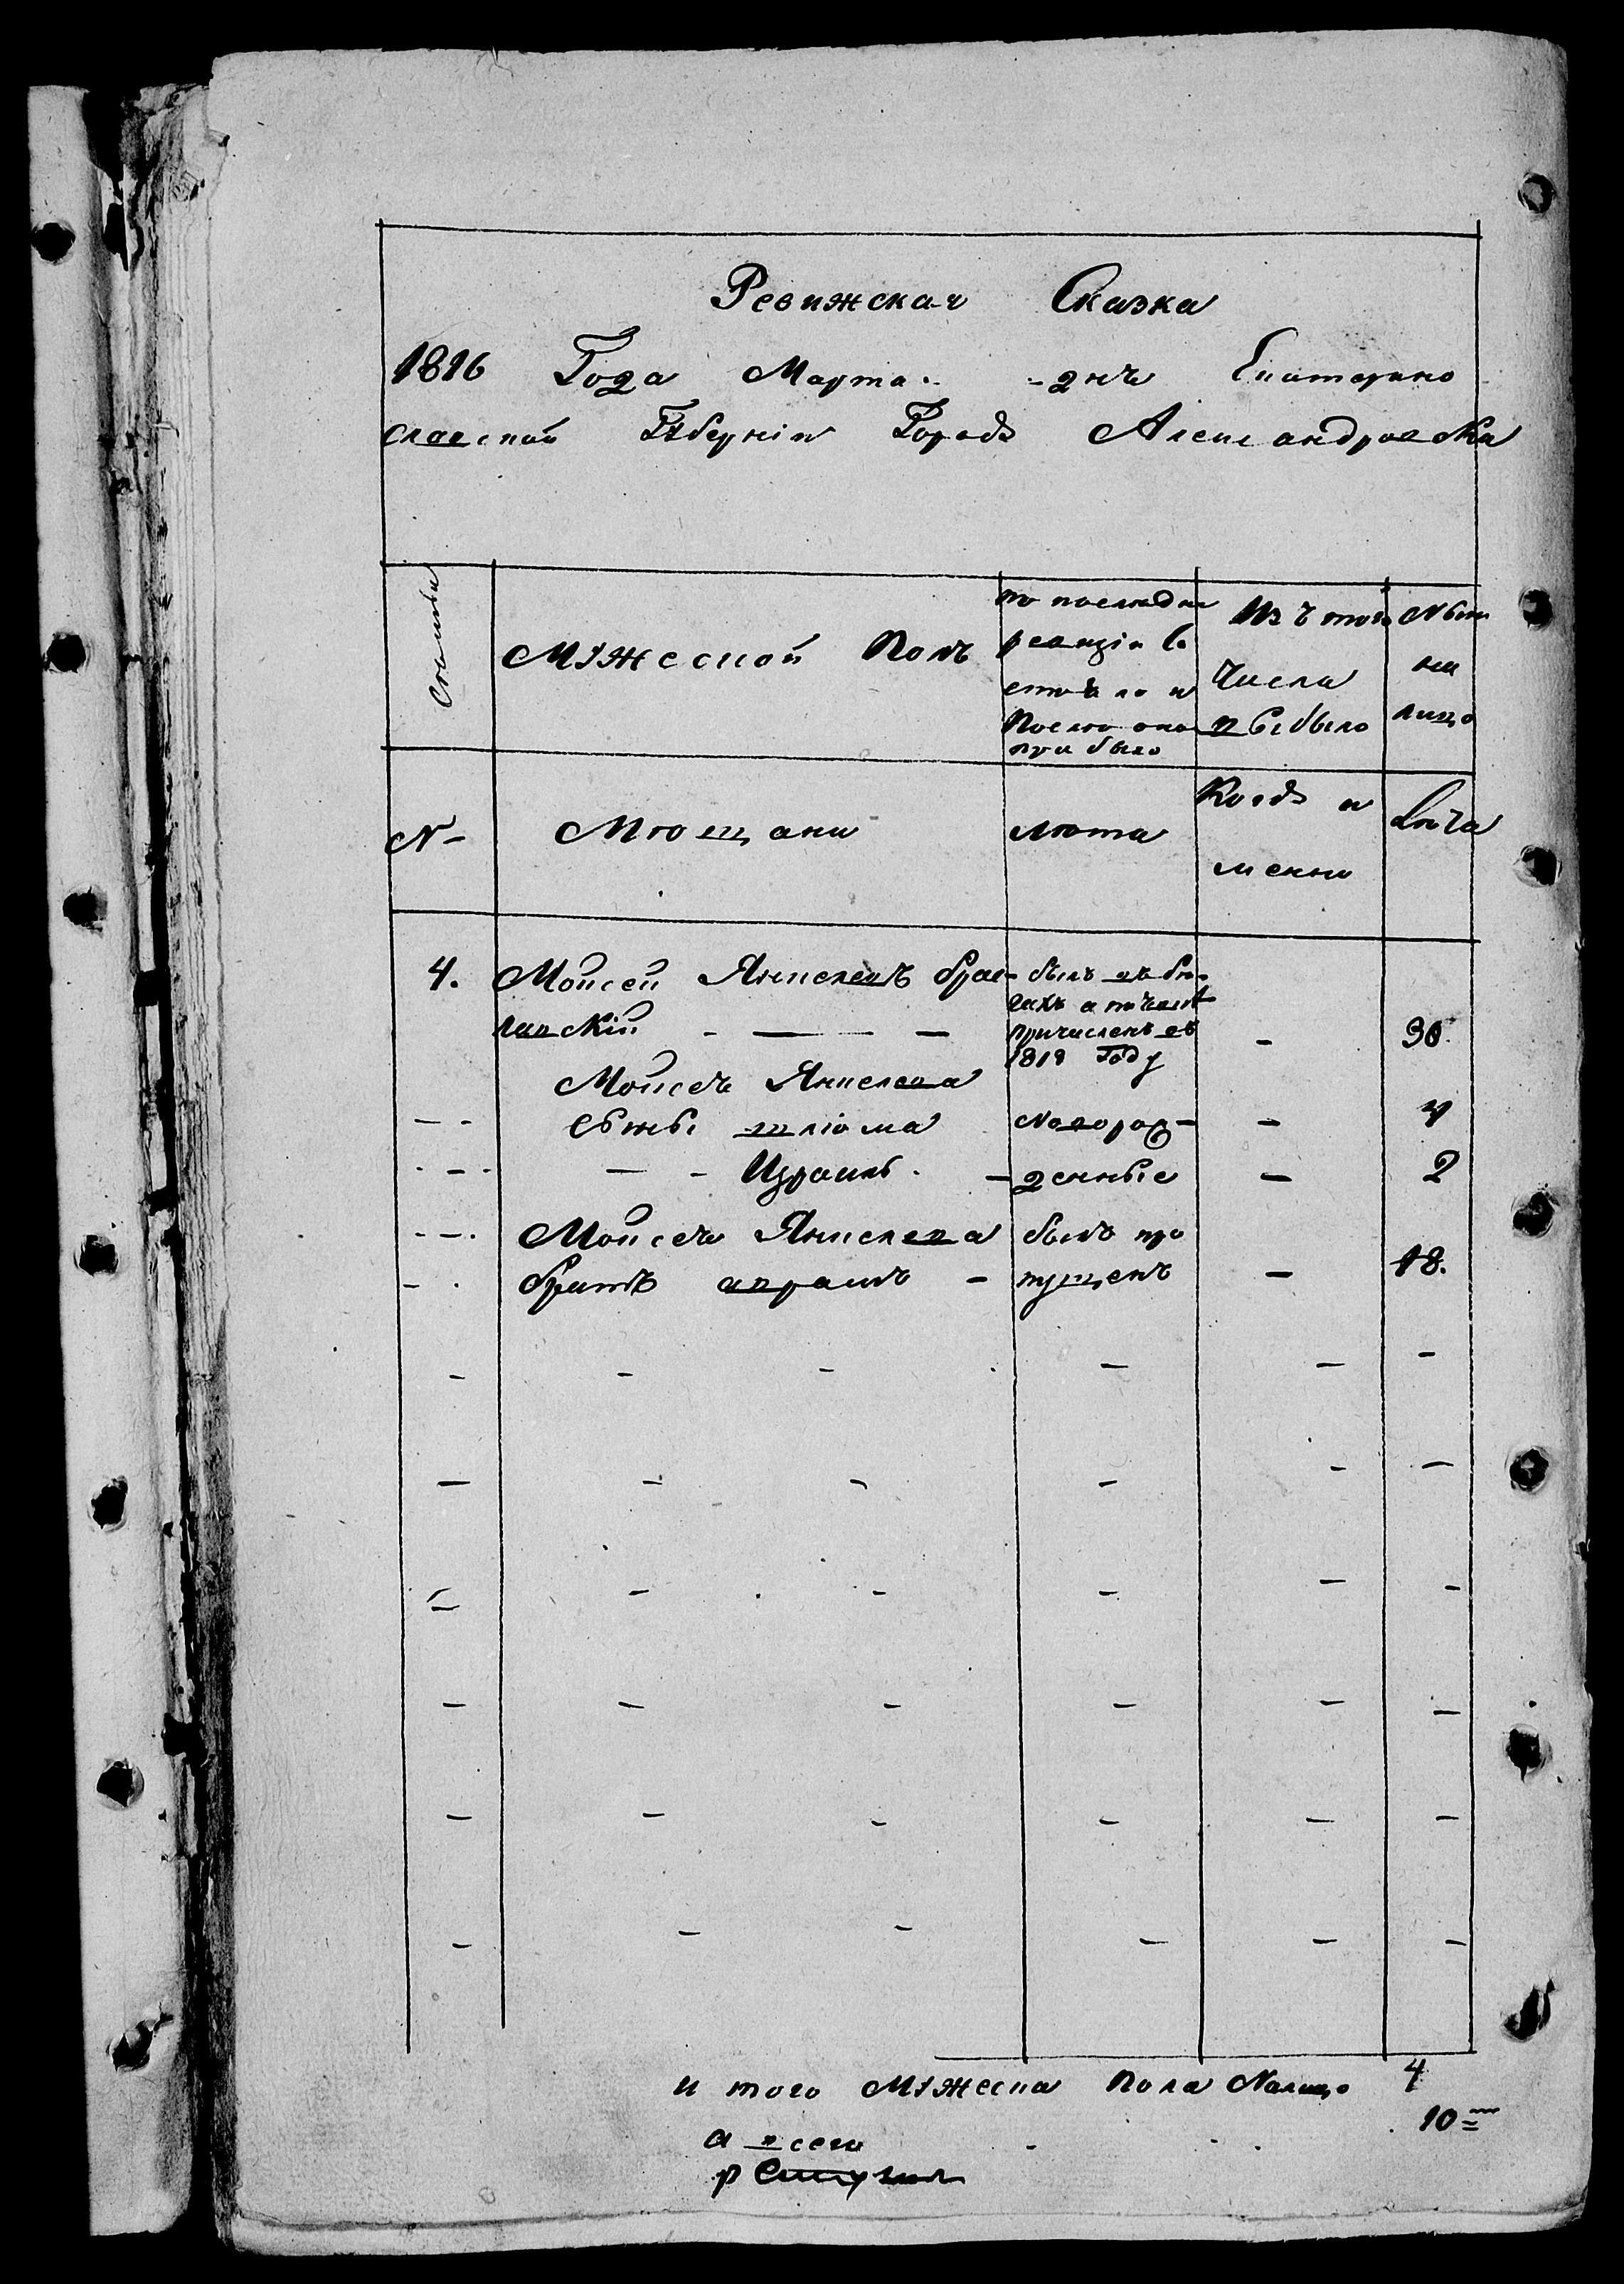 Ревижская Сказка
1816 Года Марта - дня Екатерино
славской Губерніи Города Александровска
Мужеской Полъ
по последней
ревизіи со
стояло и
После оно
при было
Изъ того
Числа
выбыло
Ныне
на
лицо
№ -
Мющани
люта
Когда и
менно
4. Мойсей Янкелевъ брас-
лавскій - — — —
былъ въ бе-
гахъ а
причисленъ въ
1812 году
- 30.
Мойсея Янкелева
— - сыны шліома Новорож- - 4
- - - — - Израиль. - денные - 2
- - - Мойсея Янкелева былъ про
- . братъ аврамъ - пущенъ - 18.
и того Мужеска Пола Налицо 4
а всего 10